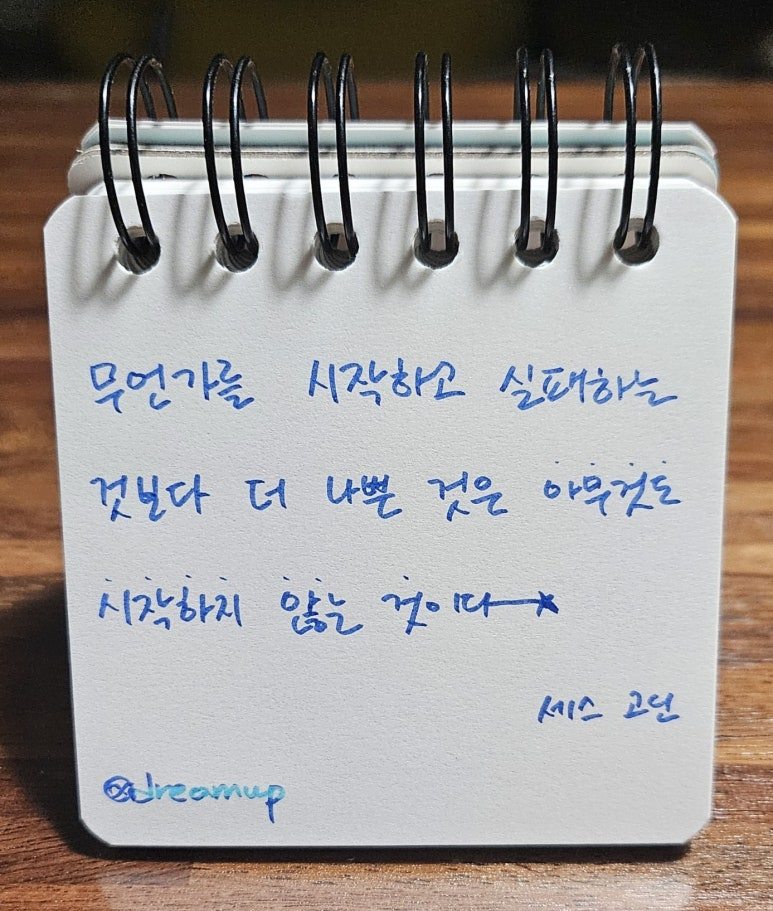 무언가를 시작하고 실패하는
것보다 더 나쁜 것은 아무것도
시작하지 않는 것이다
세스 고딘
@dreamup